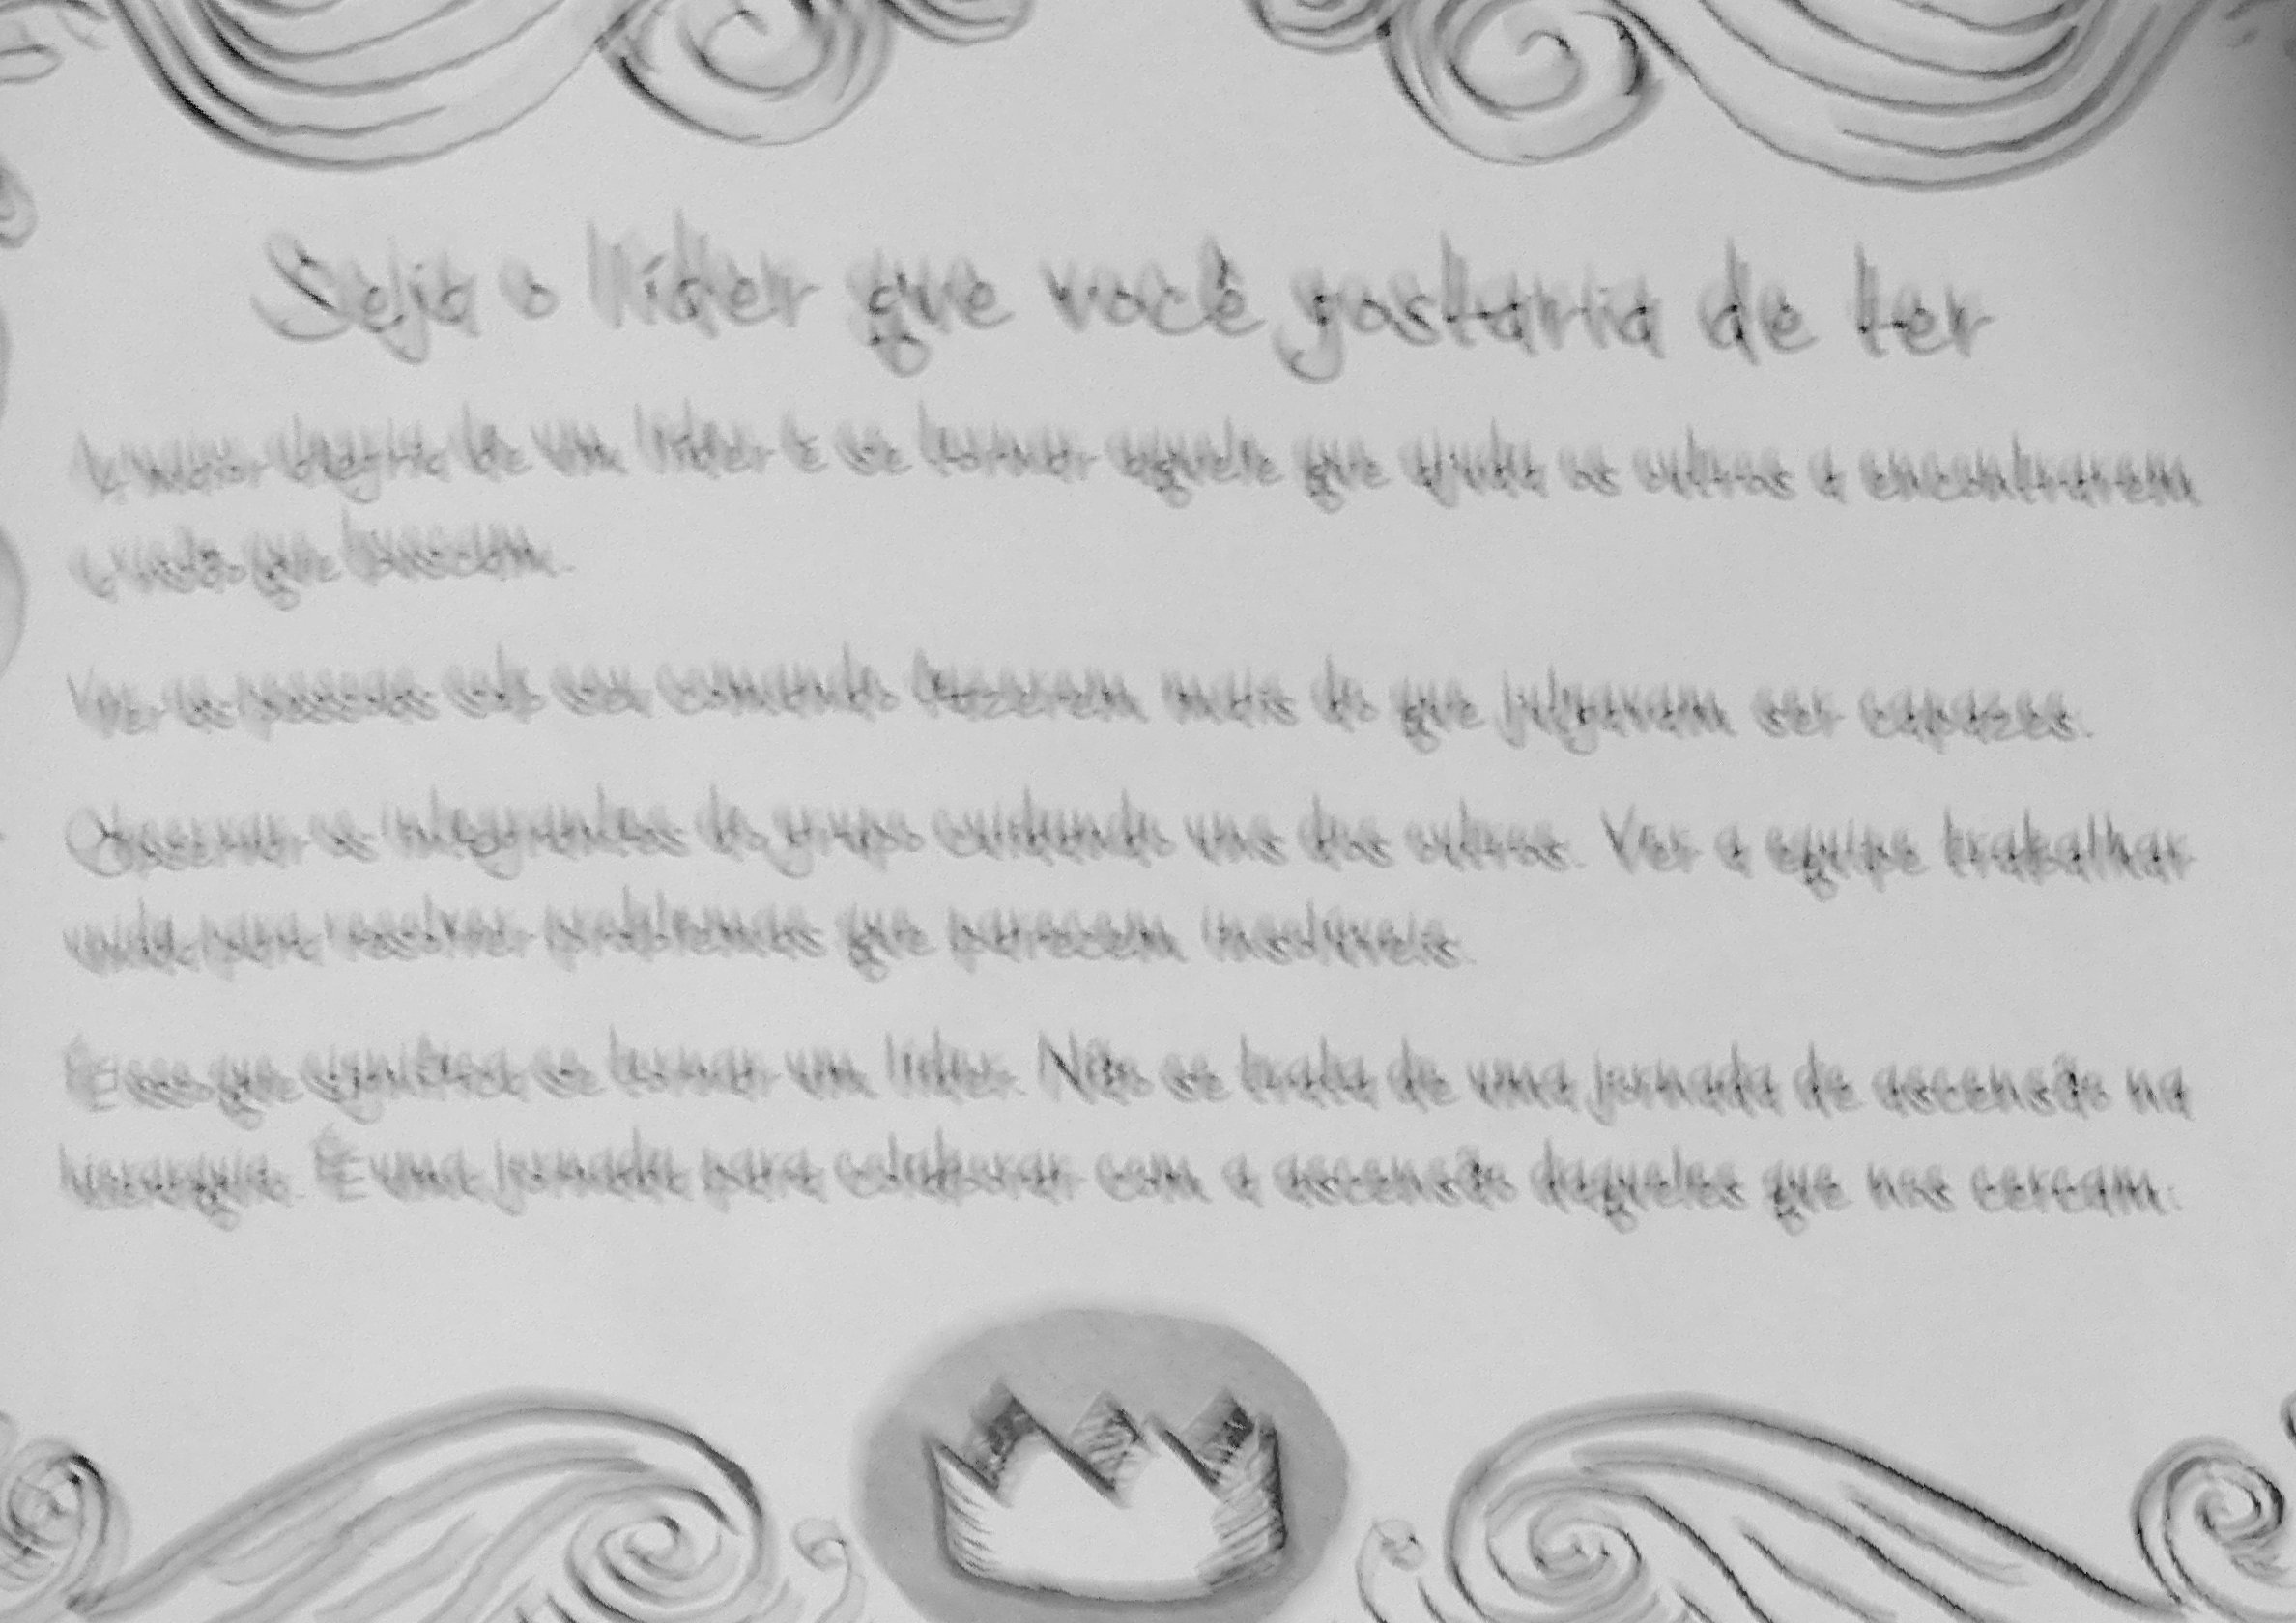 Seja o líder que você gostaria de ter
A maior alegria de um líder é se tornar aquele que ajuda os outros a encontrarem
a visão que buscam.
Ver as pessoas sob seu comando fazerem mais do que julgavam ser capazes.
Observar os integrantes do grupo cuidando uns dos outros. Ver a equipe trabalhar
unida para resolver problemas que parecem insolúveis.
É isso que significa se tornar um líder. Não se trata de uma jornada de ascensão na
hierarquia. É uma jornada para colaborar com a ascensão daqueles que nos cercam.